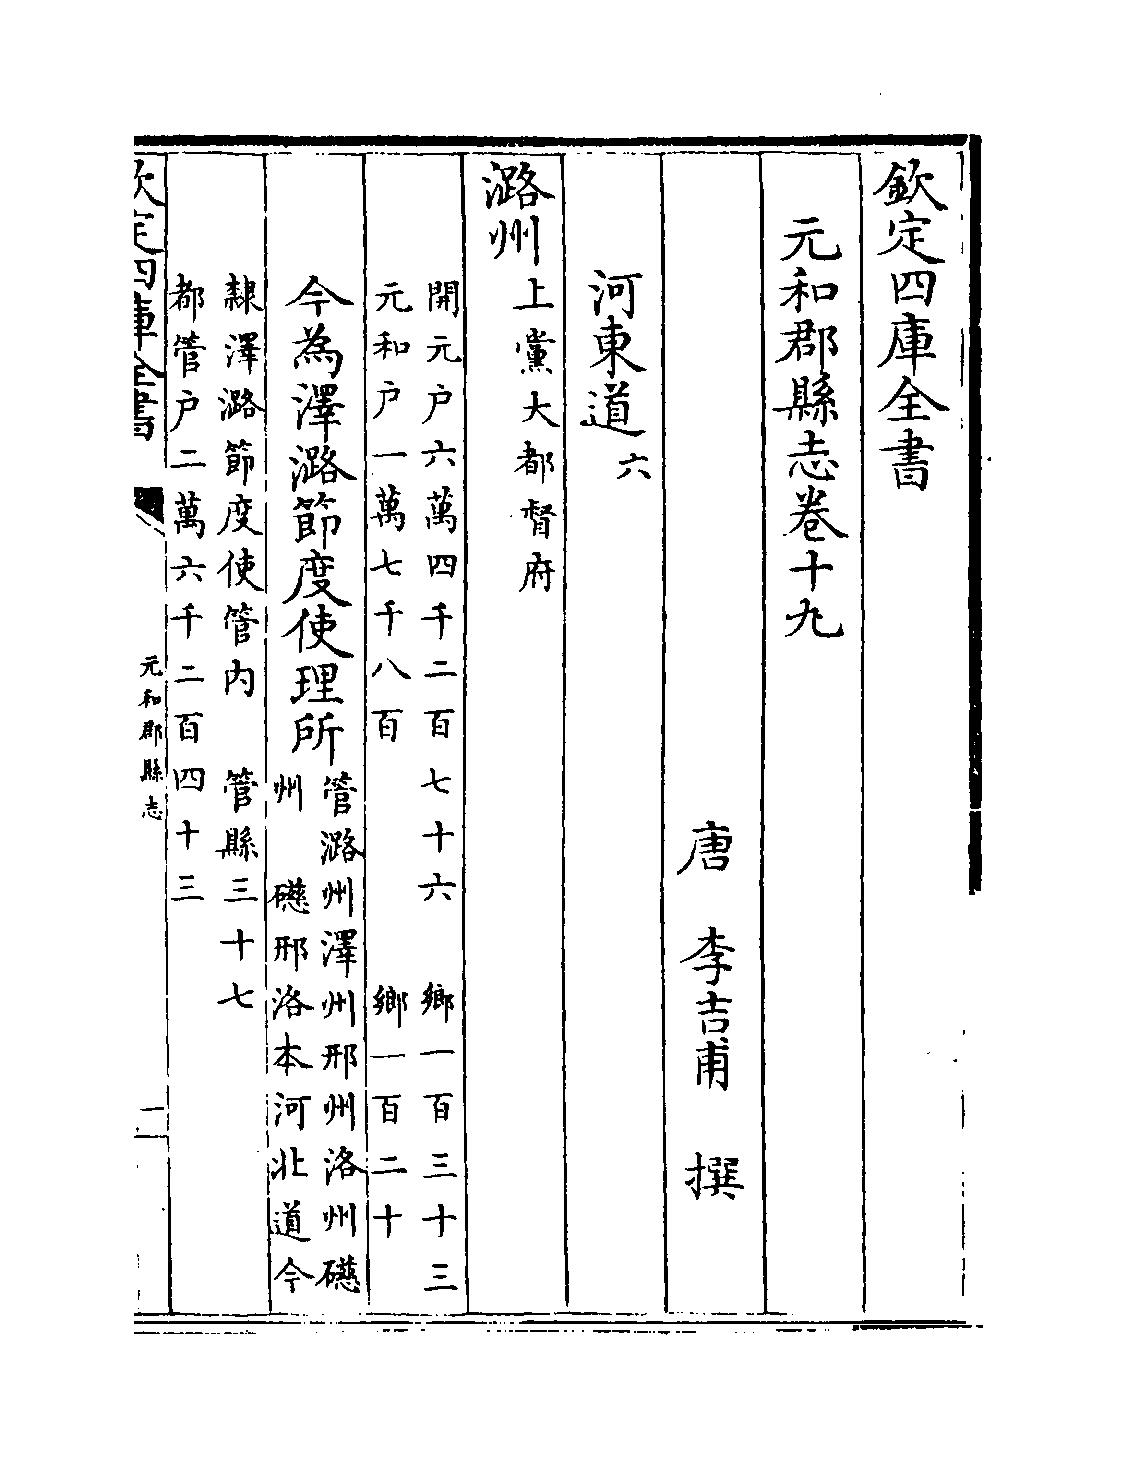 欽定四庫全書
元和郡縣志卷十九
唐 李吉甫 撰
河東道六
潞州
上黨大都督府
開元户六萬四千二百七十六 鄉一百三十三
元和户一萬七千八百 鄉一百二十
今為澤潞節度使理所
管潞州澤州邢州洺州磁
州 磁邢洺本河北道今
隸澤潞節度使管内 管縣三十七
都管户二萬六千二百四十三
欽定四庫全書
元和郡縣志
一